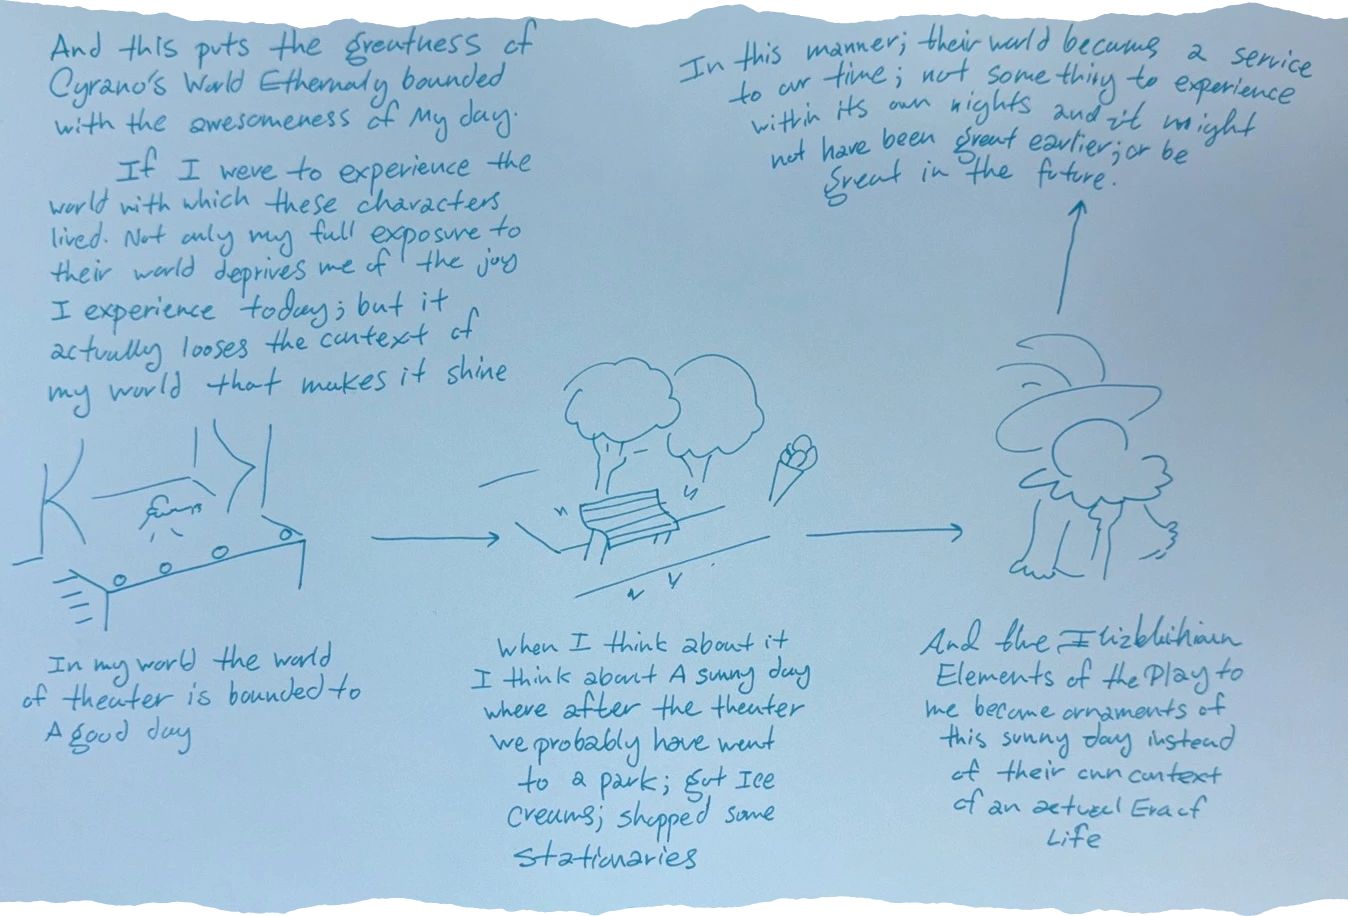 And this puts the greatness of
Cyrano's World Ethernaly bounded
with the awesomeness of My day.
If I were to experience the
world with which these characters
lived. Not only my full exposure to
their world deprives me of the joy
I experience today; but it
actually looses the context of
my world that makes it shine
In this manner; their world became a service
to our time; not something to experience
within its own nights and it might
not have been great earlier; or be
great in the future.
In my world the world
of theater is bounded to
A good day
When I think about it
I think about A sunny day
where after the theater
we probably have went
to a park; got Ice
creams; shopped some
stationaries
And the
Elements of the Play to
me become ornaments of
this sunny day instead
of their own context
of an actual Era of
Life